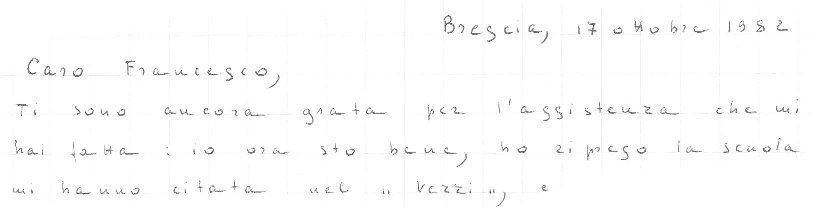 Brescia, 17 ottobre 1982
Caro Francesco,
Ti sono ancora grata per l'assistenza che mi
hai fatta : io ora sto bene, ho ripreso la scuola
mi hanno citata nel „ Vezzi „, e